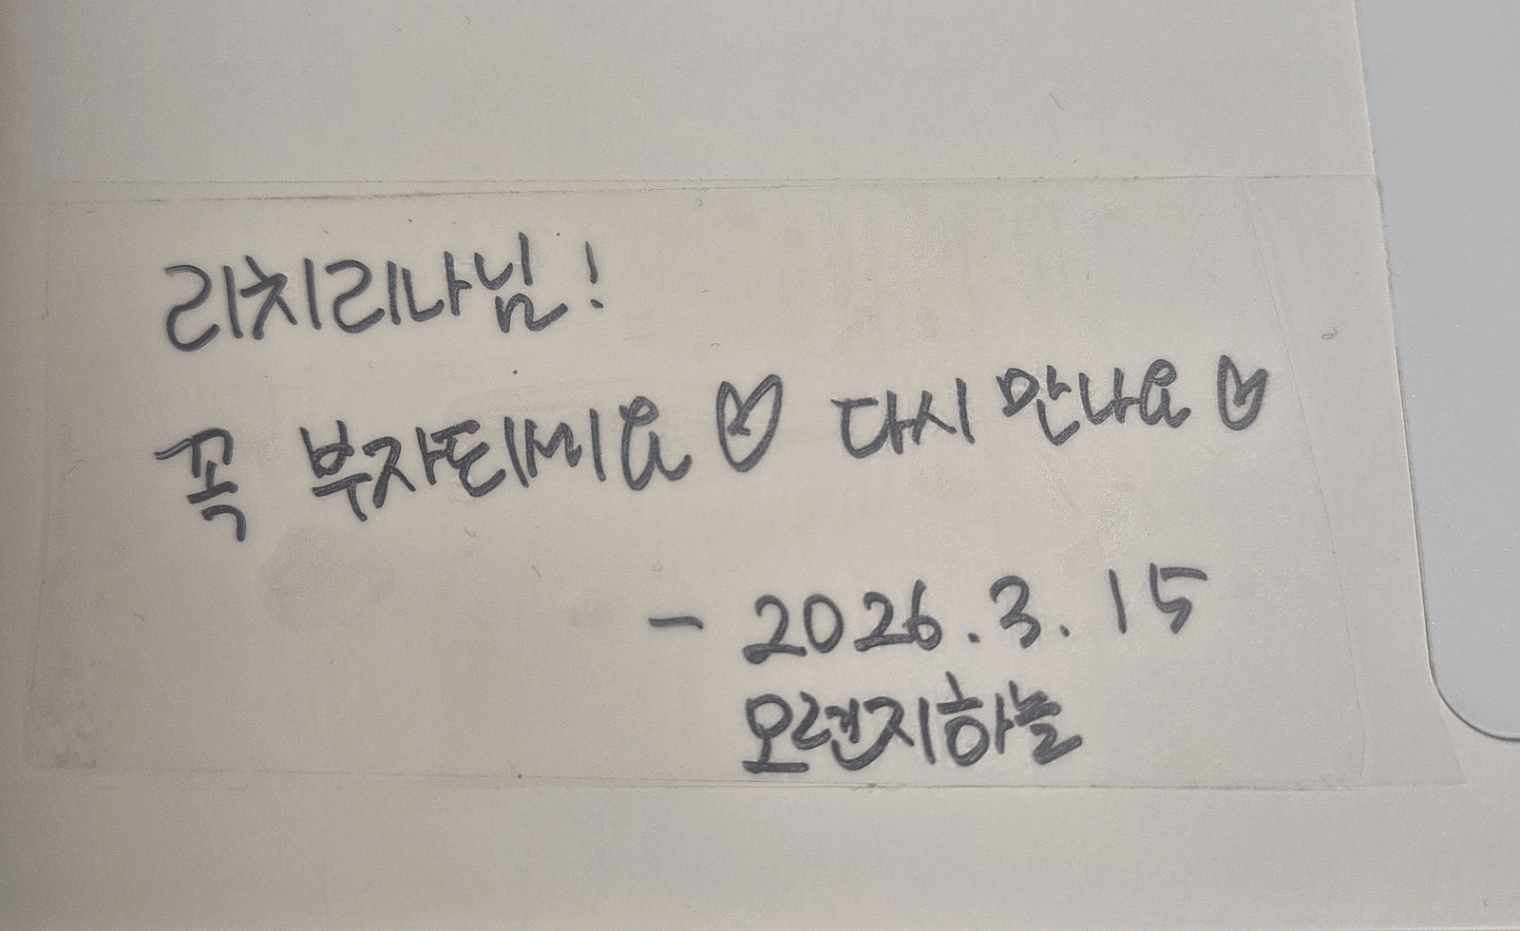 리치리나님!
꼭 부자되세요♡ 다시 만나요♡
- 2026.3.15
오렌지하늘